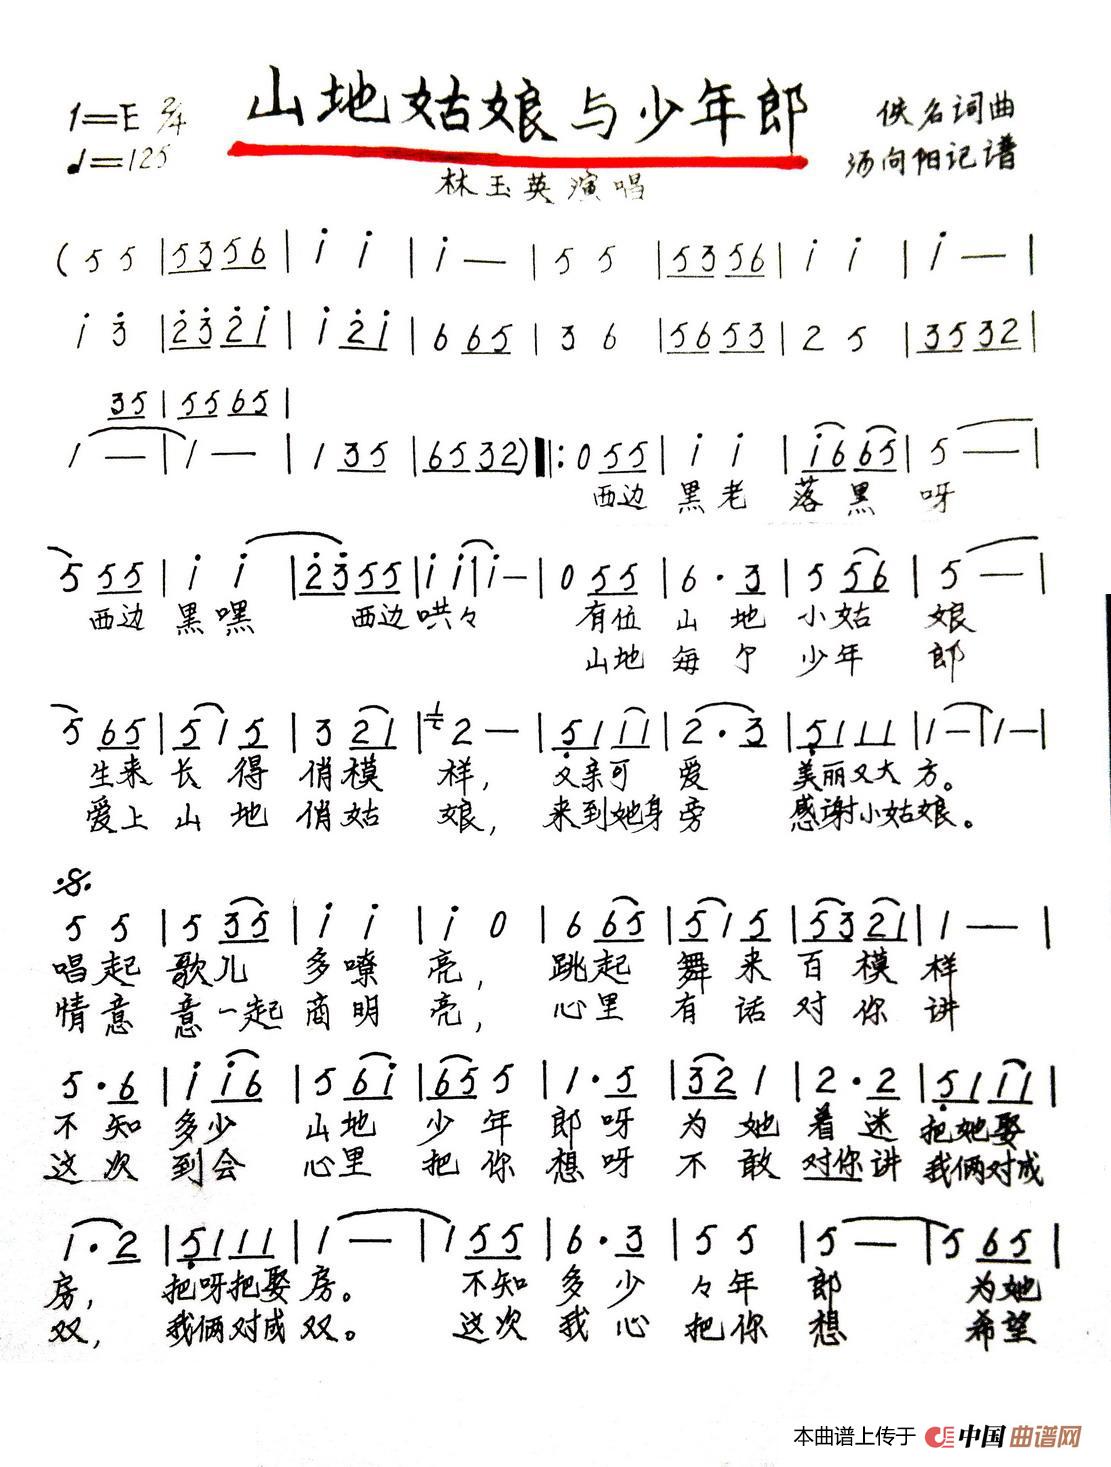 山地姑娘与少年郎
1=E 2/4
♩=125
佚名词曲
汤向阳记谱
林玉英演唱
( 5 5 | 5 3 5 6 | i i | i — | 5 5 | 5 3 5 6 | i i | i — |
i 3̇ | 2̇ 3̇ 2̇ i | i 2̇ i | 6 6 5 | 3 6 | 5 6 5 3 | 2 5 | 3 5 3 2 |
3 5 | 5 5 6 5 |
1 — | 1 — | 1 3 5 | 6 5 3 2 ) ‖: 0 5 5 | i i | i 6 6 5 | 5 — |
西边 黑老 落黑 呀
5 5 5 | i i | 2̇ 3̇ 5 5 | i i | i — | 0 5 5 | 6 · 3 | 5 5 6 | 5 — |
西边 黑嘿 西边哄々 有位 山地 小姑 娘
山地 每个 少年 郎
5 6 5 | 5 1 5 | 3 2 1 | 2 — | 5̣ 1 1 1 | 2 · 3 | 5̣ 1 1 1 | 1 — | 1 — |
生来 长得 俏模 样, 又亲可爱 美丽又大方。
爱上 山地 俏姑 娘, 来到她身旁 感谢小姑娘。
5 5 | 5 3 5 | i i | i 0 | 6 6 5 | 5 1 5 | 5 3 2 1 | 1 — |
唱起 歌儿 多嘹 亮, 跳起 舞来 百模 样
情意 意一起 商明 亮, 心里 有话 对你 讲
5 · 6 | i i 6 | 5 6 i | 6 5 5 | 1 · 5 | 3 2 1 | 2 · 2 | 5̣ 1 1 1 |
不知 多少 山地 少年 郎呀 为她 着迷 把她娶
这次 到会 心里 把你 想呀 不敢 对你讲 我俩对成
1 · 2 | 5̣ 1 1 1 | 1 — | 1 5 5 | 6 · 3 | 5 5 | 5 — | 5 6 5 |
房, 把呀把娶 房。 不知 多少 々年 郎 为她
双, 我俩对成 双。 这次 我心 把你 想 希望
本曲谱上传于 中国曲谱网